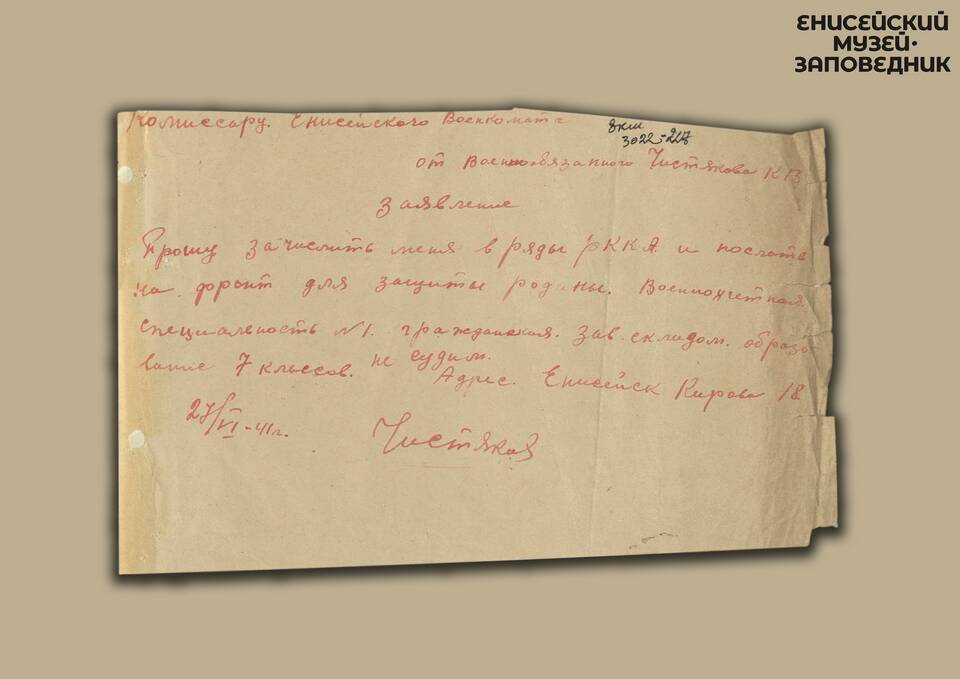 ЕНИСЕЙСКИЙ
МУЗЕЙ·
ЗАПОВЕДНИК
Комиссару. Енисейского Военкомата
3022-217
от Военнообязанного Чистякова К В
Заявление
Прошу зачислить меня в ряды РККА и послать
на фронт для защиты родины. Военноучетная
специальность №1. гражданская. зав. складом. образо
вание 7 классов. не судим.
Адрес. Енисейск Кирова 18
27/VI-41г.
Чистяков